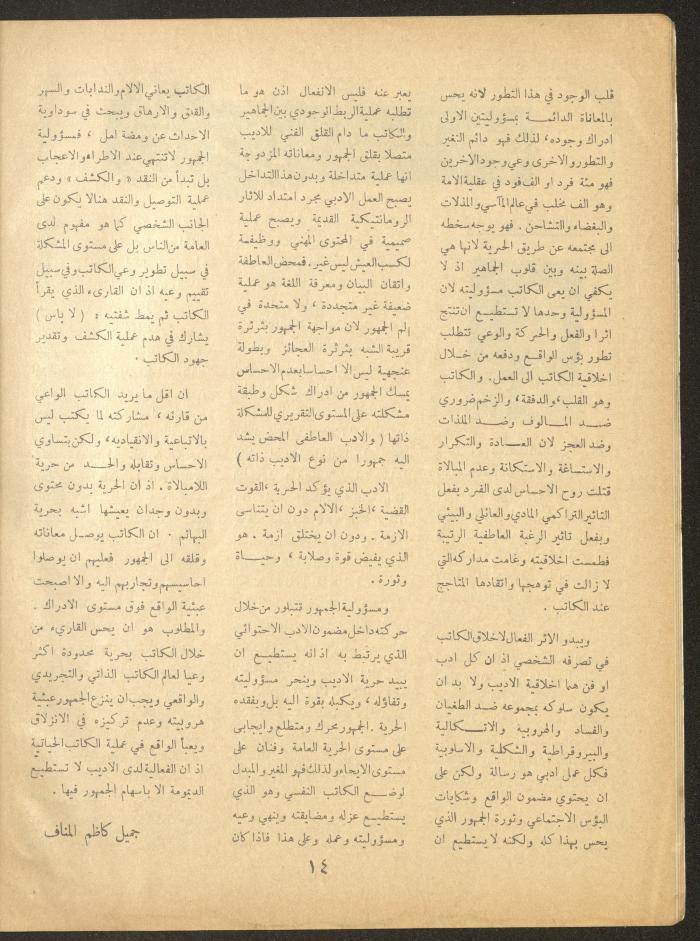 قلب الوجود في هذا التطور لانه يحس
بالمعاناة الدائمة بمسؤوليتين الاولى
ادراك وجوده، لذلك فهو دائم التغير
والتطور والاخرى وعي وجود الاخرين
فهو مئة فرد او الف فود في عقلية الامة
وهو الف مخلب في عالم المآسي والمذلات
والبغضاء والتشاحن . فهو يوجه سخطه
الى مجتمعه عن طريق الحرية لانها هي
الصلة بينه وبين قلوب الجماهير اذ لا
يكفي ان يعى الكاتب مسؤوليته لان
المسؤولية وحدها لا تستطيع ان تنتج
اثرا والفعل والحركة والوعي تتطلب
تطور بؤس الواقع ودفعه من خلال
اخلاقية الكاتب الى العمل. والكاتب
وهو القلب، والدفقة، والزخم ضروري
ضد المالوف وضد الملذات
وضد العجز لان العادة والتكرار
والاستساغة والاستكانة وعدم المبالاة
قتلت روح الاحساس لدى الفرد بفعل
التاثير التراكمي المادي والعائلي والبيئي
وبفعل تاثير الرغبة العاطفية الرتيبة
فطمست اخلاقيته وغامت مداركه التي
لا زالت في توهجها واتقادها المتاجج
عند الكاتب .
ويبدو الاثر الفعال لاخلاق الكاتب
في تصرفه الشخصي اذ ان كل ادب
او فن هما اخلاقية الاديب ولا بد ان
يكون سلوكه بمجموعه ضد الطغيان
والفساد والهروبية والاتكالية
والبيروقراطية والشكلية والاسلوبية
فكل عمل ادبي هو رسالة ولكن على
ان يحتوي مضمون الواقع وشكايات
البؤس الاجتماعي وثورة الجمهور الذي
يحس بهذا كله ولكنه لا يستطيع ان
يعبر عنه فليس الانفعال اذن هو ما
تطلبه عملية الربط الوجودي بين الجماهير
والكاتب ما دام القلق الفني للاديب
متصلا بقلق الجمهور ومعاناته المزدوجة
انها عملية متداخلة وبدون هذا التداخل
يصبح العمل الادبي مجرد امتداد للاثار
الرومانتيكية القديمة ويصبح عملية
صميمية في المحتوى المهني ووظيفة
لكسب العيش ليس غير. فمحض العاطفة
واتقان البيان ومعرفة اللغة هو عملية
ضعيفة غير متجددة ، ولا متحدة في
الم الجمهور لان مواجهة الجمهور بثرثرة
قريبة الشبه بثرثرة العجائز وبطولة
عنجهية ليس الا احساسا بعدم الاحساس
يمسك الجمهور من ادراك شكل وطبقة
مشكلته على المستوى التقريري للمشكلة
ذاتها ( والادب العاطفى المحض يشد
اليه جمهورا من نوع الاديب ذاته )
الادب الذي يؤكد الحرية ، القوت
القضية ، الخبز ، الالام دون ان يتناسى
الازمة . ودون ان يختلق ازمة . هو
الذي يفيض قوة وصلابة ، وحياة
وثورة .
ومسؤولية الجمهور تتبلور من خلال
حركته داخل مضمون الادب الاحتوائي
الذي يرتبط به اذ انه يستطيع ان
يبيد حرية الاديب وينحر مسؤوليته
وتفاؤله ، ويكبله بقوة اليه بل ويفقده
الحرية . الجمهور محرك ومتطلع وايجابى
على مستوى الحرية العامة وفنان على
مستوى الايحاء ولذلك فهو المغير والمبدل
لوضع الكاتب النفسي وهو الذي
يستطيع عزله ومضايقته وينهي وعيه
ومسؤوليته وعمله وعلى هذا فاذا كان
الكاتب يعاني الالام والندابات والسهر
والقلق والارهاق ويبحث في سوداوية
الاحداث عن ومضة امل ، فمسؤولية
الجمهور لا تنتهي عند الاطراء والاعجاب
بل تبدأ من النقد « والكشف » ودعم
عملية التوصيل والنقد هنا لا يكون على
الجانب الشخصي كما هو مفهوم لدى
العامة من الناس بل على مستوى المشكلة
في سبيل تطوير وعي الكاتب وفي سبيل
تقييم وعيه اذ ان القارىء الذي يقرأ
الكاتب ثم يمط شفتيه : ( لا باس )
يشارك في هدم عملية الكشف وتقدير
جهود الكاتب .
ان اقل ما يريد الكاتب الواعي
من قارئه ، مشاركته لما يكتب ليس
بالاتباعية والانقياديه، ولكن بتساوي
الاحساس وتقابله والحد من حرية
اللامبالاة . اذ ان الحرية بدون محتوى
وبدون وجدان يعيشها اشبه بحرية
البهائم . ان الكاتب يوصل معاناته
وقلقه الى الجمهور فعليهم ان يوصلوا
احاسيسهم وتجاربهم اليه والا اصبحت
عبثية الواقع فوق مستوى الادراك .
والمطلوب هو ان يحس القاريء من
خلال الكاتب بحرية محدودة اكثر
وعيا لعالم الكاتب الذاتي والتجريدي
والواقعي ويجب ان ينزع الجمهور عبثية
هروبيته وعدم تركيزه في الانزلاق
ويعبأ الواقع في عملية الكاتب الحياتية
اذ ان الفعالية لدى الاديب لا تستطيع
الديمومة الا باسهام الجمهور فيها .
جميل كاظم المناف
١٤